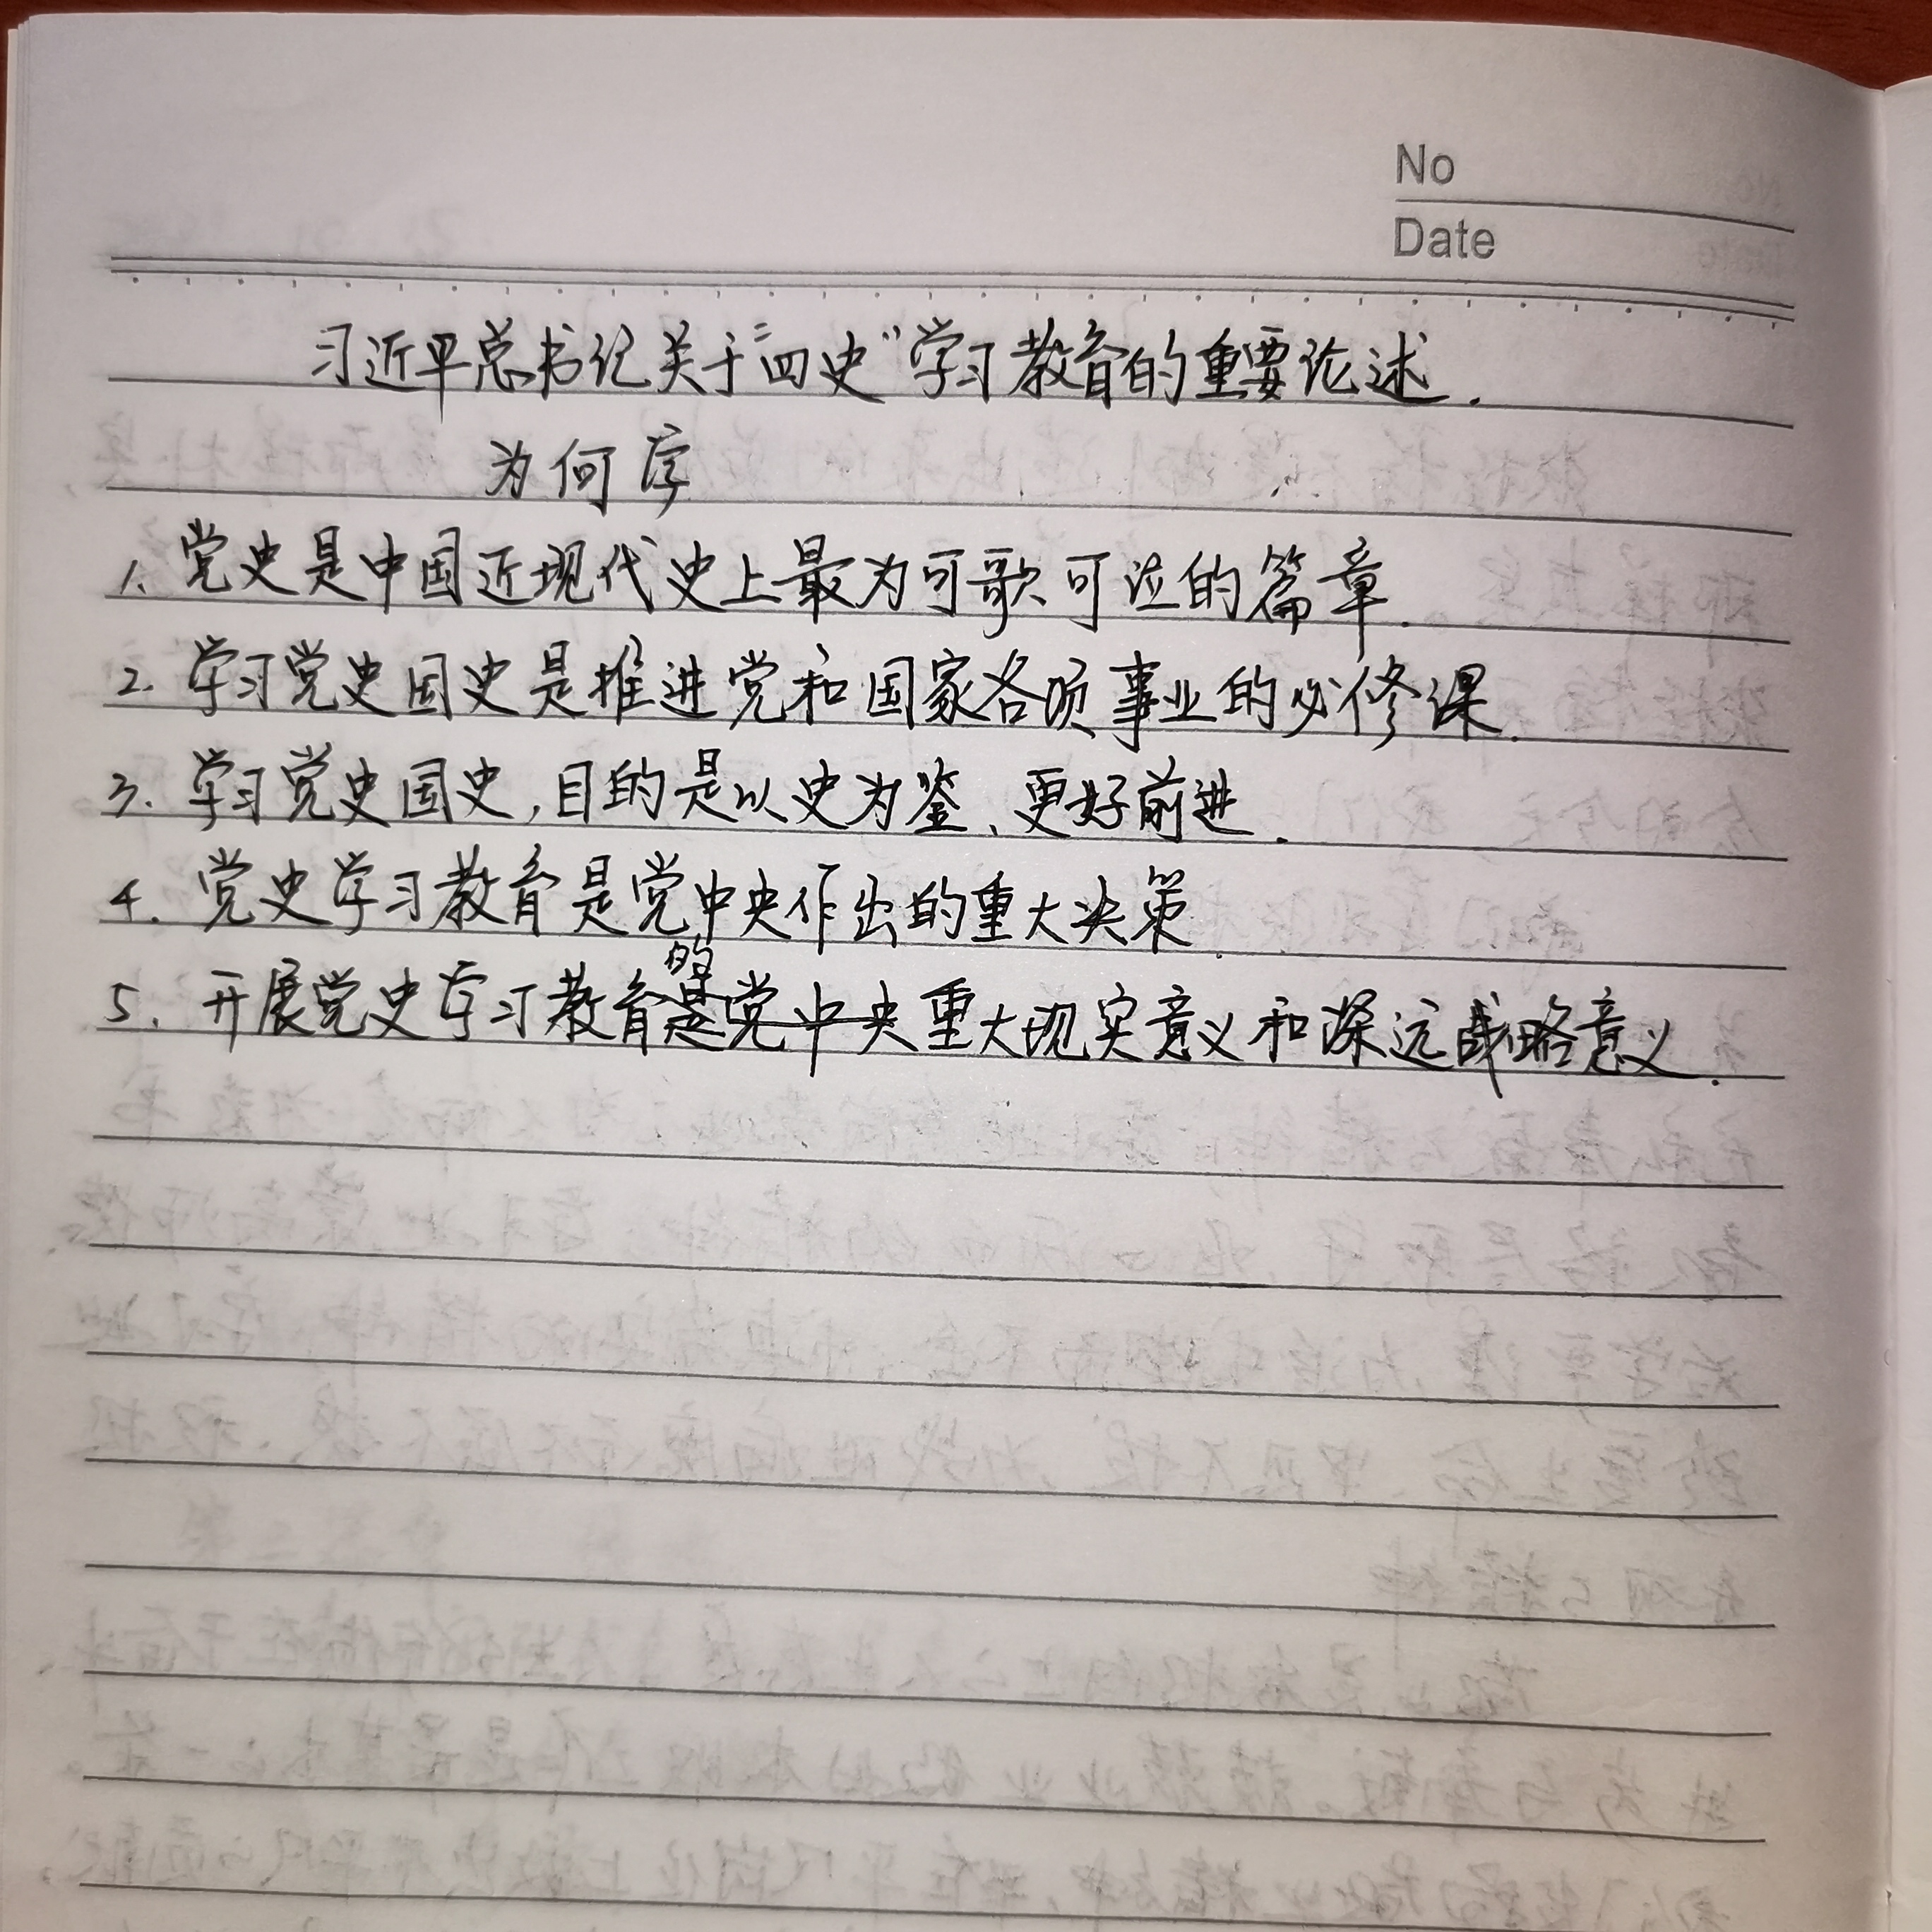 No
Date
习近平总书记关于“四史”学习教育的重要论述.
为何学
1. 党史是中国近现代史上最为可歌可泣的篇章.
2. 学习党史国史是推进党和国家各项事业的必修课.
3. 学习党史国史,目的是以史为鉴、更好前进.
4. 党史学习教育是党中央作出的重大决策.
5. 开展党史学习教育的重大现实意义和深远战略意义.